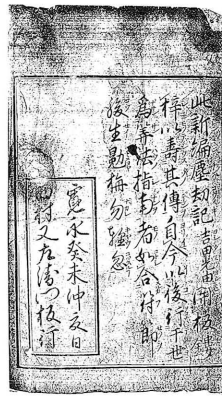 此新編塵劫記吉田由開板
梓以壽其傳自今以後行于世
為筭法指南者如合符節
後生勿輕忽
寛永癸未仲夏日
西村又左衛門板行